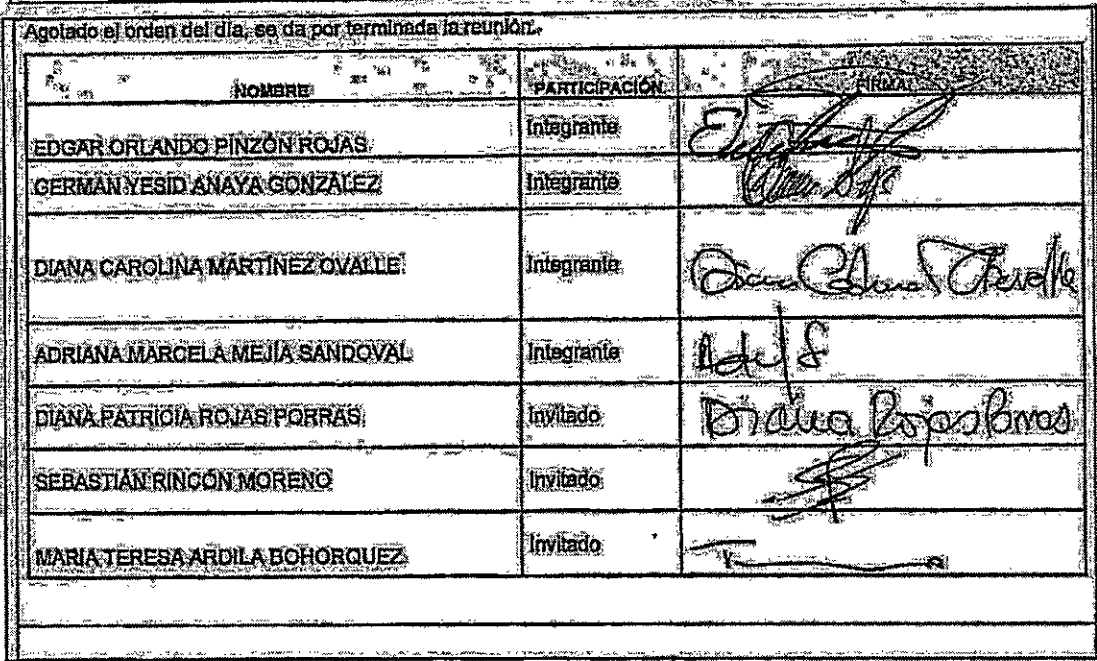 Agotado el orden del día, se da por terminada la reunión.
NOMBRE PARTICIPACIÓN FIRMA
EDGAR ORLANDO PINZÓN ROJAS Integrante
GERMAN YESID ANAYA GONZÁLEZ Integrante
DIANA CAROLINA MARTÍNEZ OVALLE Integrante Diana Carolina Ovalle
ADRIANA MARCELA MEJÍA SANDOVAL Integrante
DIANA PATRICIA ROJAS PORRAS Invitado Diana Rojas Porras
SEBASTIÁN RINCÓN MORENO Invitado
MARIA TERESA ARDILA BOHORQUEZ Invitado